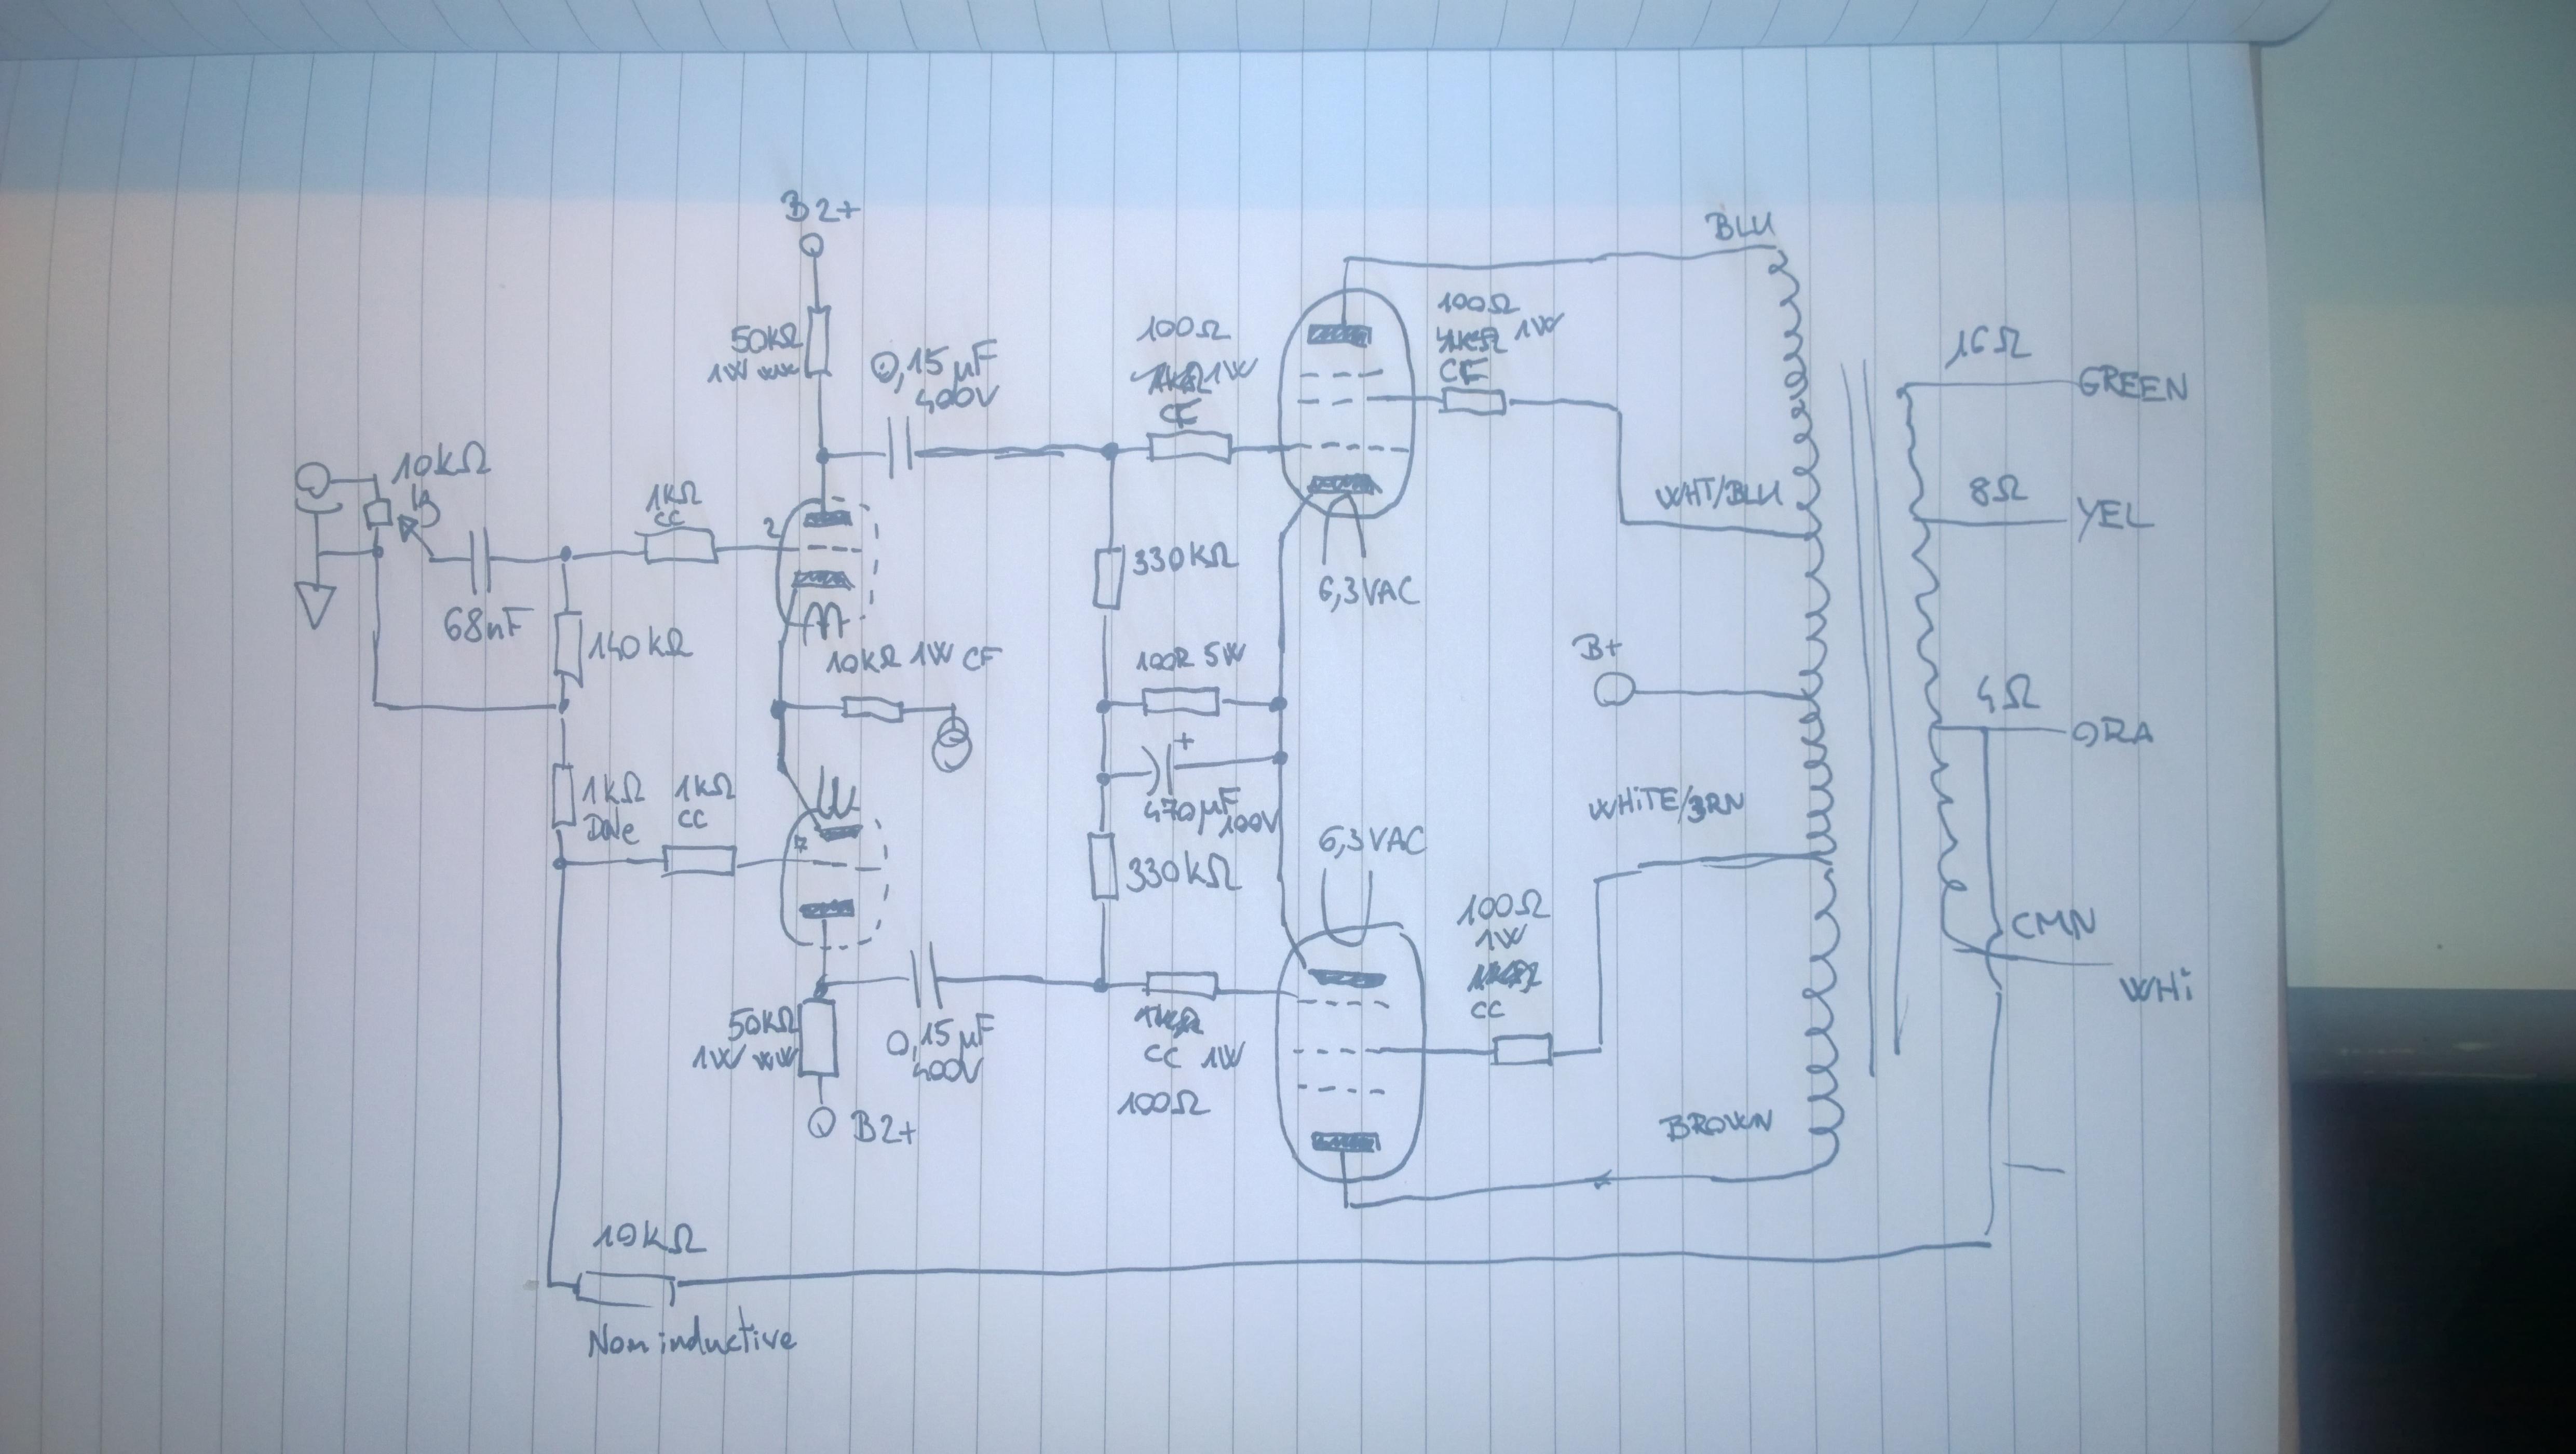 B2+
BLU
50kΩ
1W ww
0,15 µF
400V
100Ω
1W
CF
100Ω
1W
CF
16Ω
GREEN
10kΩ
1kΩ
CC
2
WHT/BLU
8Ω
YEL
68nF
140kΩ
330kΩ
6,3VAC
10kΩ 1W CF
100R 5W
B+
4Ω
ORA
+
470µF
100V
1kΩ
Dale
1kΩ
CC
7
WHiTE/BRN
330kΩ
6,3VAC
100Ω
1W
CC
CMN
WHi
50kΩ
1W ww
0,15 µF
400V
CC 1W
100Ω
B2+
BROWN
10kΩ
Non inductive